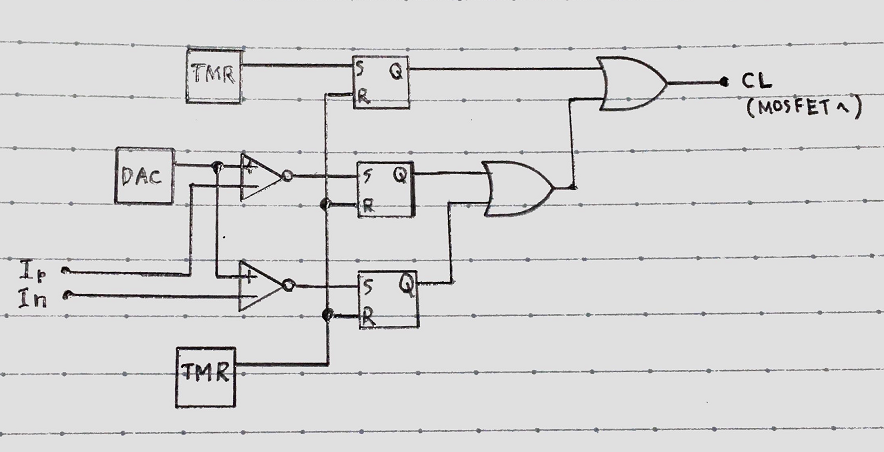 TMR
S Q
R
CL
(MOSFETへ)
DAC
+
−
S Q
R
Ip
In
+
−
S Q
R
TMR